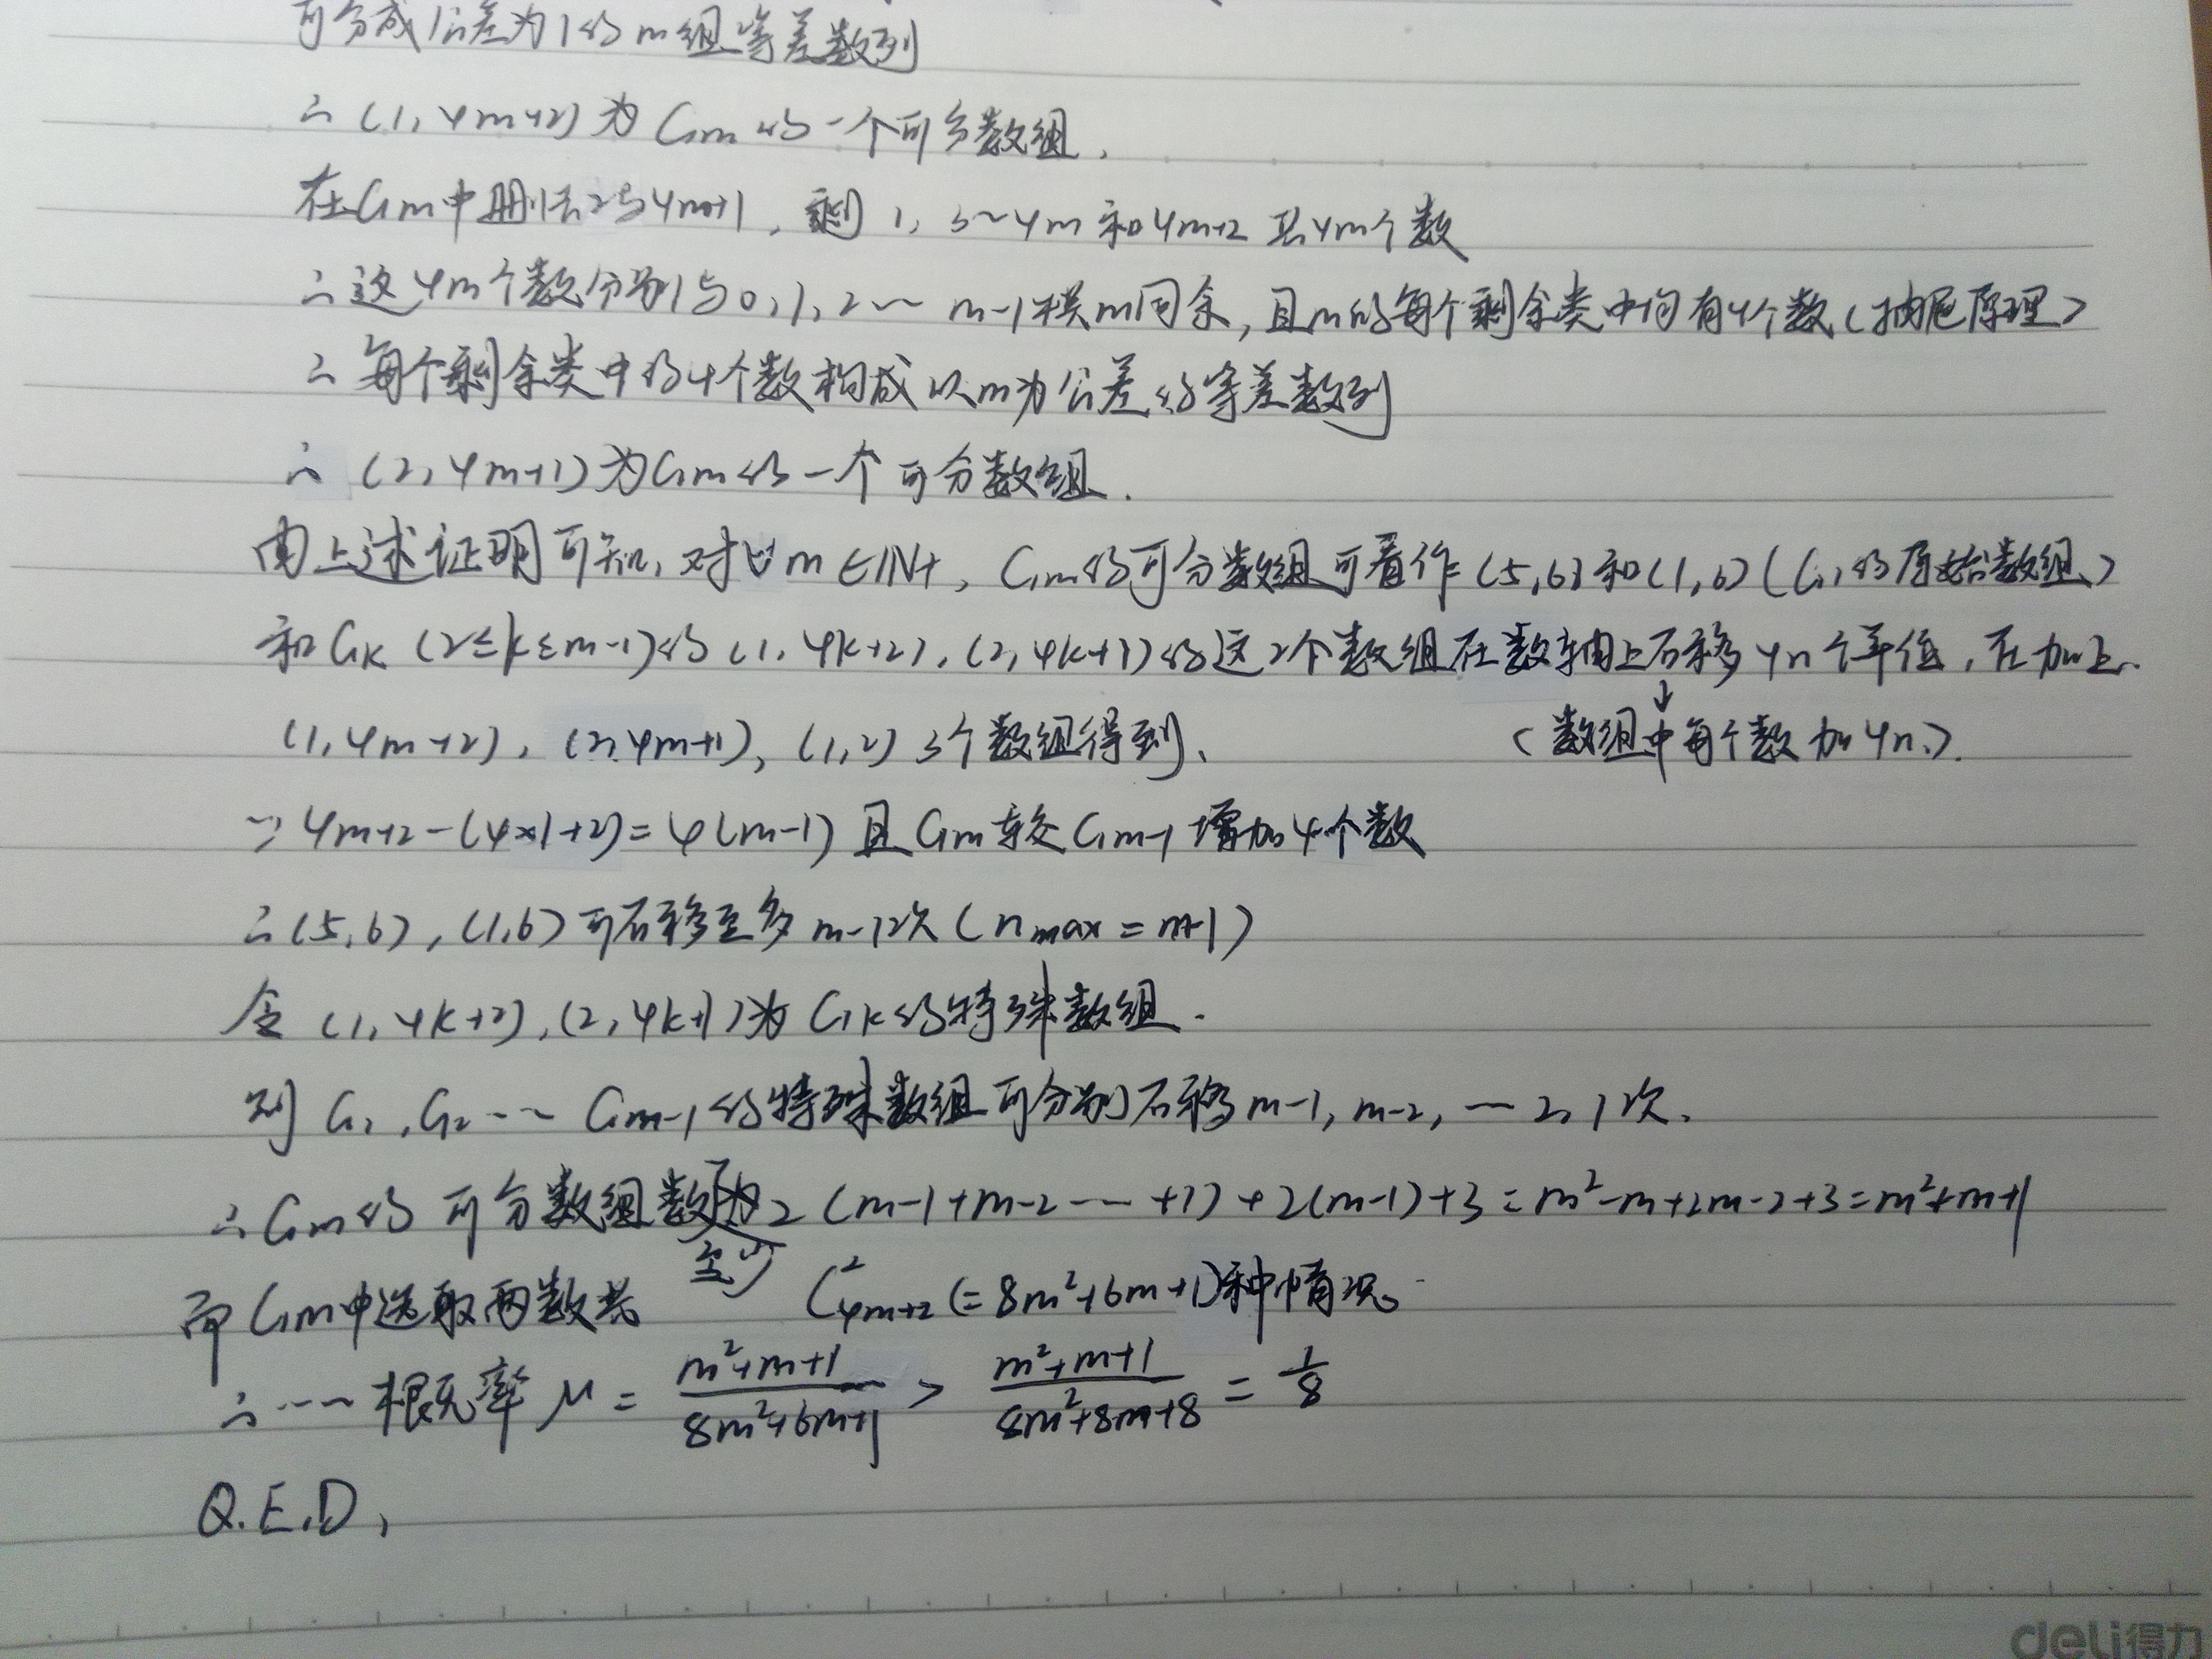 可分成公差为1的m组等差数列
∴ (1, 4m+2) 为 Gm的一个可分数组.
在Gm中删去2与4m+1, 剩 1, 3~4m 和4m+2 共4m个数
∴ 这4m个数分别与0, 1, 2 ~ m-1模m同余, 且m的每个剩余类中均有4个数(抽屉原理)
∴ 每个剩余类中的4个数构成以m为公差的等差数列
∴ (2, 4m+1) 为Gm的一个可分数组.
由上述证明可知, 对∀m∈N+, Gm的可分数组可看作 (5,6)和(1,6) (G1的原始数组)
和Gk (2≤k≤m-1)的 (1, 4k+2), (2, 4k+1)的这2个数组在数轴上右移4n个单位, 再加上
(1, 4m+2), (2, 4m+1), (1,2) 3个数组得到. ↓(数组中每个数加4n).
∵ 4m+2-(4×1+2)=4(m-1) 且Gm较Gm-1增加4个数
∴ (5,6), (1,6) 可右移至多 m-1次 (nmax = m-1)
令 (1, 4k+2), (2, 4k+1)为 Gk的特殊数组.
则 G1, G2 …… Gm-1的特殊数组可分别右移m-1, m-2, … 2, 1次.
∴ Gm的可分数组数至少为2(m-1+m-2……+1)+2(m-1)+3=m²-m+2m-2+3=m²+m+1
而Gm中选取两数共 C²4m+2 (=8m²+6m+1)种情况.
∴ …… 概率 μ = m²+m+1/8m²+6m+1 > m²+m+1/8m²+8m+8 = 1/8
Q.E.D.
deli得力